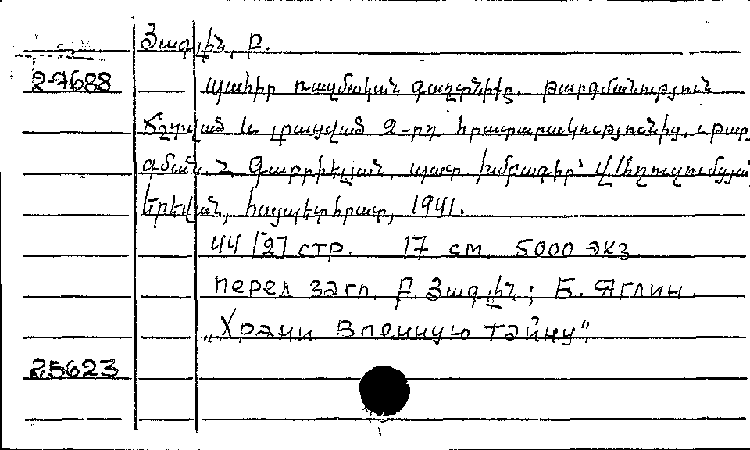 Յագլին, Բ.
2-7688 պահիր ռազմական գաղտնիքը. թարգմանություն
ճշտված և լրացված 2-րդ հրատարակությունից. թարգ
գման. Հ Գաբրիելյան, պատ խմբագիր՝
Երեվան, հայպետհրատ, 1941.
44 [2] стр. 17 см. 5000 экз
перед загл. Բ Յագլին; Б. Яглин.
„Храни военную тайну"
25623